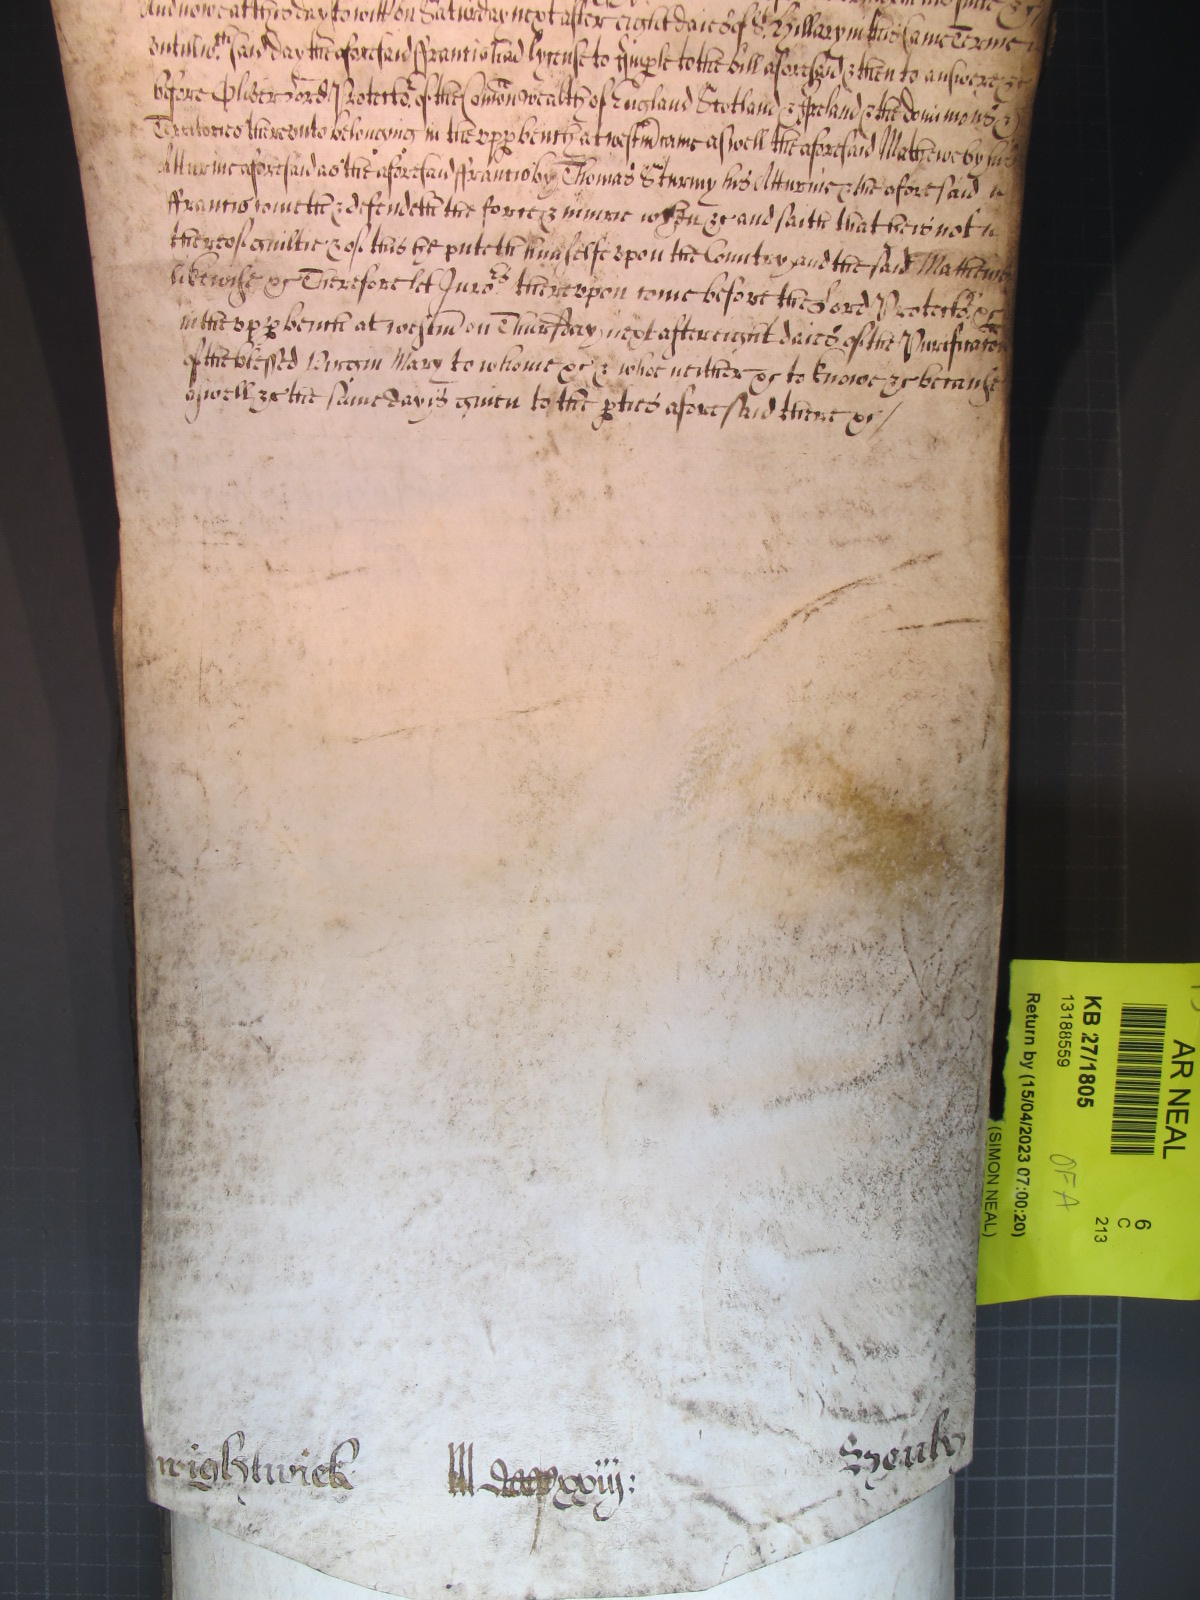 And nowe at this day to witt on Saturday next after eight daies of St. Hillary in this same Terme
vntill wch. said day the aforesaid ffrancis had lycense to imple to the bill aforesaid & then to answere &c
before Oliver Lord Protector. of the Comon wealth of England Scotland & Ireland & the dominions &
Territories thereunto belonging in the vpp bench at westm came aswell the aforesaid Mathewe by his
Atturnie aforesaid as the aforesaid ffrancis by Thomas Sturmy his Atturnie & the aforesaid
ffrancis cometh & defendeth the force & iniurie when &c and saith that he is not
thereof guiltie & of this he puteth himselfe vpon the Country and the said Mathewe
likewise &c Therefore let Jurors. therevpon come before the Lord Protector. &c
in the vpp bench at westm on Thursday next after eight daies of the Purificaton
of the blessed Virgin Mary to whome &c & whoe neither &c to knowe &c because
aswell &c the same day is given to the pties aforesaid there &c /
wightwick
xxiij:
AR NEAL
KB 27/1805
13188559
Return by (15/04/2023 07:00:20)
(SIMON NEAL)
OFA
6
C
213